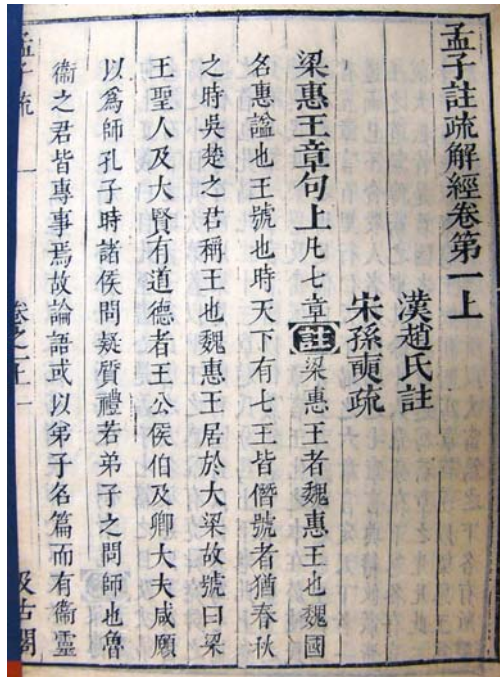 孟子註疏解經卷第一上
漢趙氏註
宋孫奭疏
梁惠王章句上凡七章註梁惠王者魏惠王也魏國
名惠謚也王號也時天下有七王皆僭號者猶春秋
之時吳楚之君稱王也魏惠王居於大梁故號曰梁
王聖人及大賢有道德者王公侯伯及卿大夫咸願
以爲師孔子時諸侯問疑質禮若弟子之問師也魯
衞之君皆專事焉故論語或以弟子名篇而有衞靈
孟子疏
一
卷之一上
汲古閣